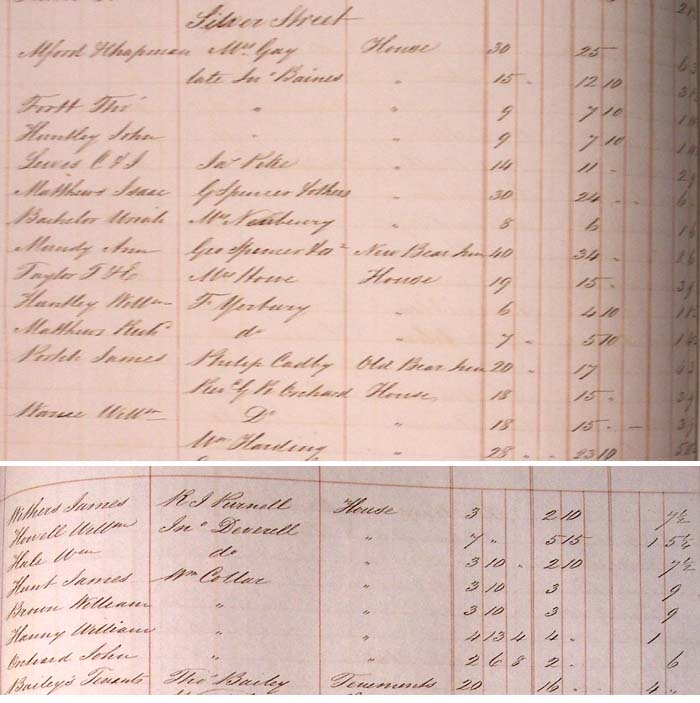 Silver Street
Alford & Chapman Mrs Gay House 30 25
late Jno Baines " 15 - 12 10
Thos " " 9 7 10
Huntley John " " 9 7 10
C & J Jas Pike " 14 11 -
Matthews Isaac G Spencer & others " 30 24 - -
Bachelor Uriah Mrs Newbury " 8 6
Mundy Ann Geo Spencer New Bear Inn 40 34 -
Taylor T & E Mrs Howe House 19 15 -
Huntley Willm F Yerbury " 6 4 10
Matthews Richd do " 7 - 5 10
James Philip Cadby Old Bear Inn 20 - 17
Orchard House 18 15 -
Willm Do " 18 15 - -
Wm Harding " 28 - - 23 10
Withers James R J Purnell House 3 2 10 7½
Howell Willm Jno Deverell " 7 " 5 15 1 5¼
Hale Wm do " 3 10 - 2 10 7½
Hunt James Wm Collar " 3 10 3 9
Brown William " " 3 10 3 9
Hanny William " " 4 13 4 4 - 1
Orchard John " " 2 6 8 2 - 6
Bailey's Tenants Thos Bailey Tenements 20 16 - - 4 "